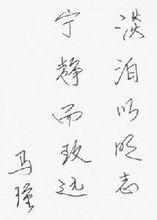 淡泊以明志
宁静而致远
马瑾